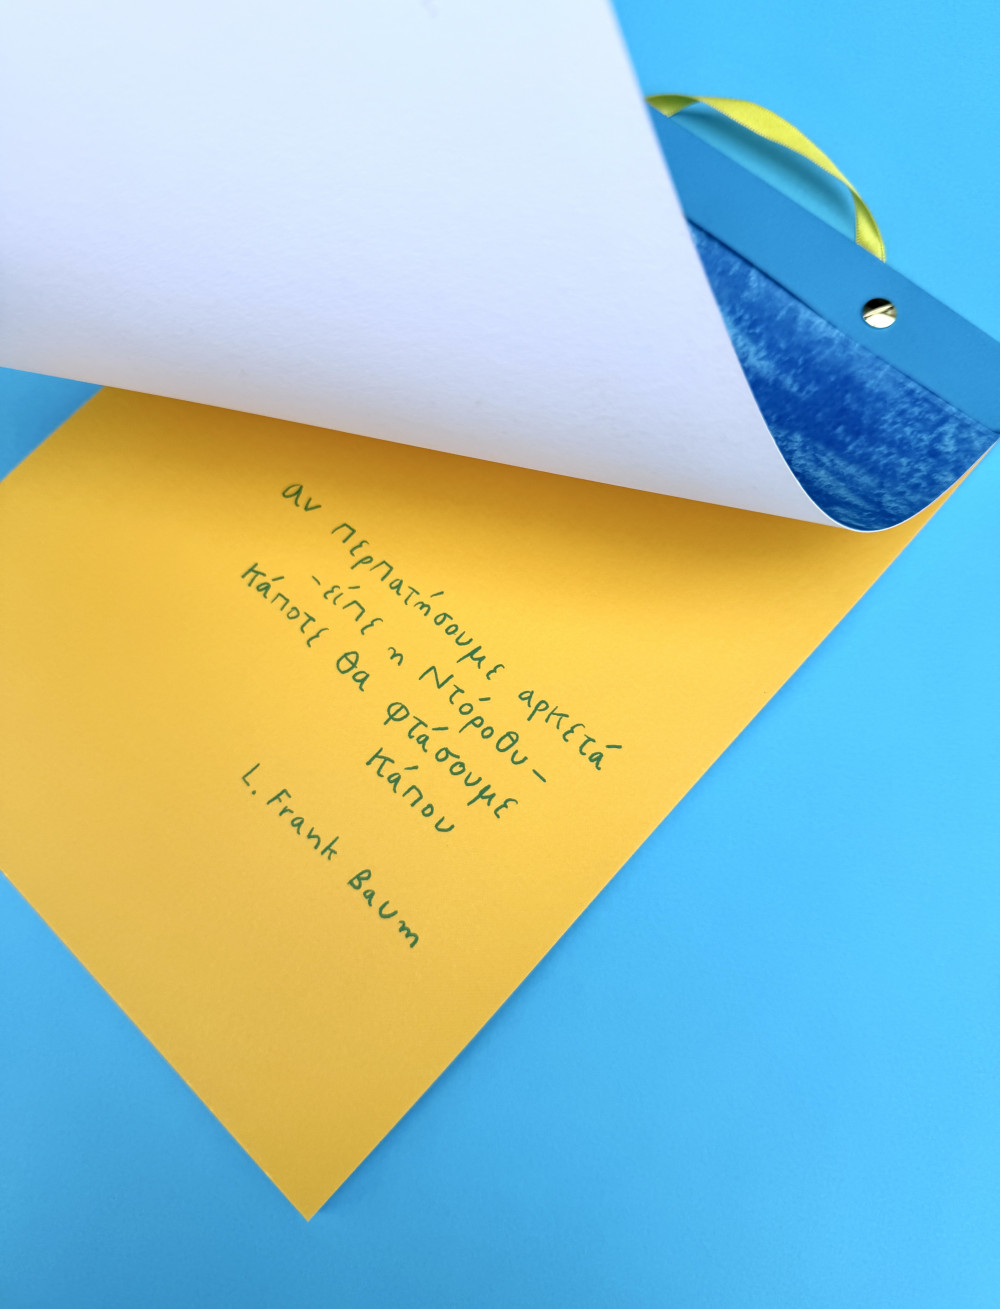 αν περπατήσουμε αρκετά
-είπε η Ντόροθυ-
κάποτε θα φτάσουμε
κάπου
L. Frank Baum